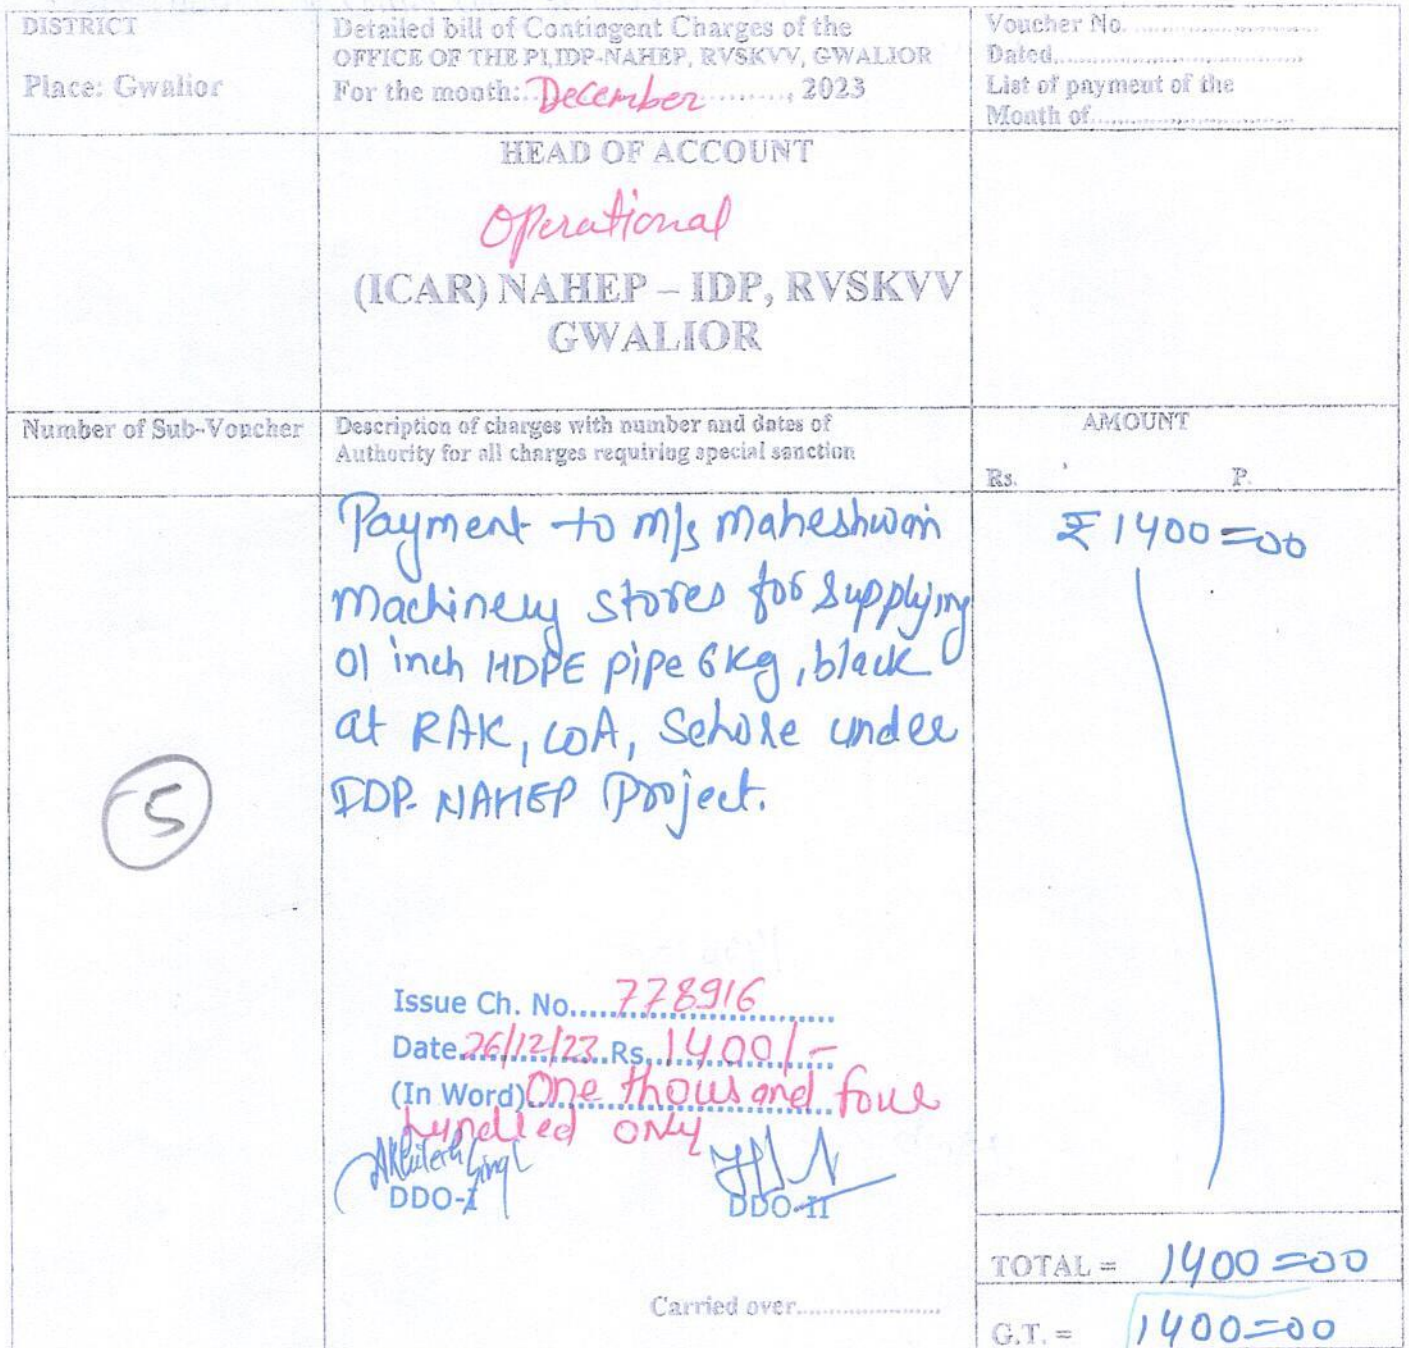 DISTRICT
Place: Gwalior
Detailed bill of Contingent Charges of the
OFFICE OF THE PI,IDP-NAHEP, RVSKVV, GWALIOR
For the month: December ........., 2023
Voucher No. ............................
Dated....................................
List of payment of the
Month of..............................
HEAD OF ACCOUNT
Operational
(ICAR) NAHEP – IDP, RVSKVV
GWALIOR
Number of Sub-Voucher
Description of charges with number and dates of
Authority for all charges requiring special sanction
AMOUNT
Rs. P.
5
Payment to M/s Maheshwari
Machinery stores for supplying
01 inch HDPE pipe 6 Kg, black
at RAK, COA, Sehore under
IDP-NAHEP Project.
₹ 1400=00
Issue Ch. No.....778916
Date.26/12/23.Rs.1400/-
(In Word) One thousand four
hundred only
Akhilesh Singh
DDO-I
DDO-II
TOTAL = 1400=00
Carried over......................
G.T. = 1400=00